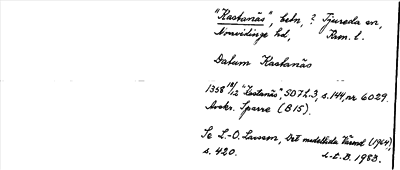 "Kastanäs", betn, ? Tjureda sn,
Norrvidinge hd, Kron. l.
Datum Kastanäs
1358 18/12 "Kastanäs", SD 7 h.3, s. 144, nr 6029.
Avskr. Sparre (B15).
Se L.-O. Larsson, Det medeltida Värend (1964),
s. 420. L-E. D. 1983.